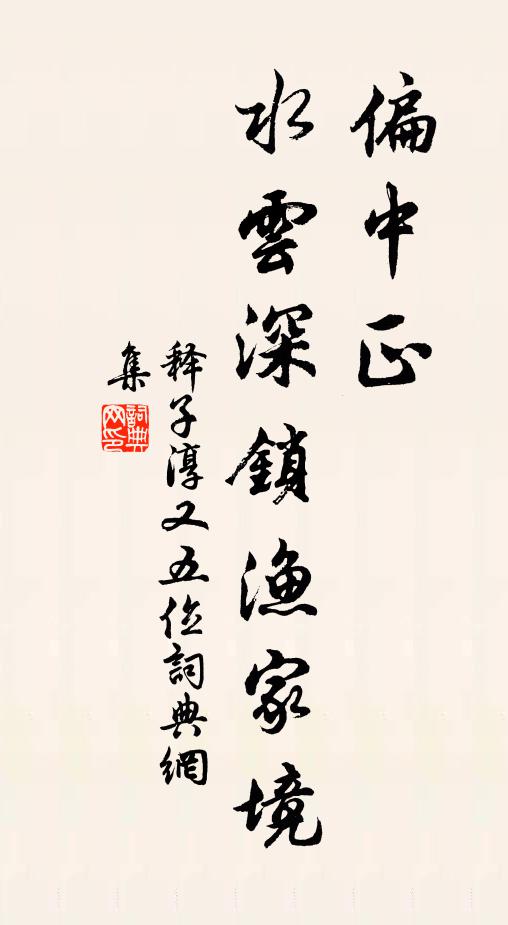 偏中正
水雲深鎖漁家境
释子淳又五位詞典網
集
詞典網印